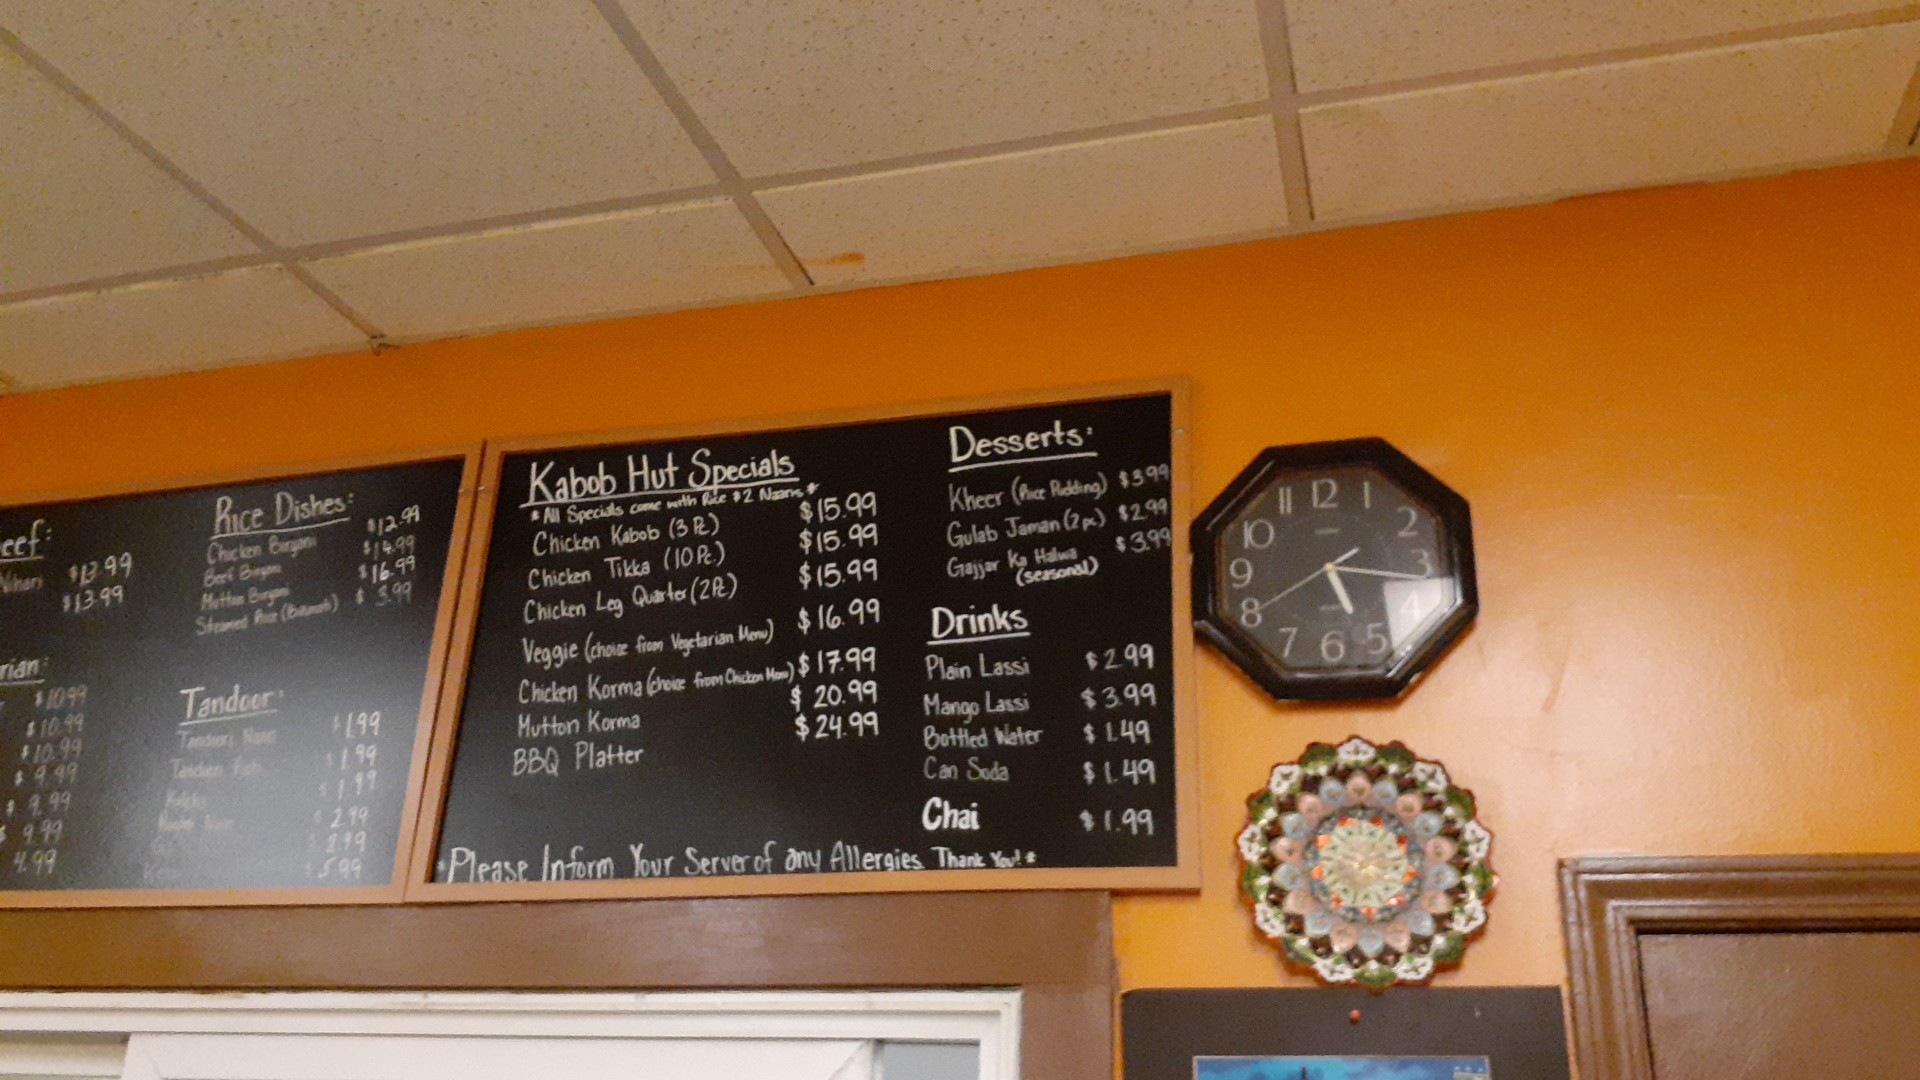 eef:
Nihari $13.99
$13.99
rian:
$10.99
$10.99
$10.99
$9.99
$9.99
9.99
4.99
Rice Dishes:
Chicken Biryani $12.99
Beef Biryani $14.99
Mutton Biryani $16.99
Steamed Rice (Basmati) $3.99
Tandoor:
Tandoori Naan $1.99
Tandoori $1.99
$1.99
Naan $2.99
2.99
$5.99
Kabob Hut Specials
*All Specials come with Rice & 2 Naans*
Chicken Kabob (3 Pc.) $15.99
Chicken Tikka (10 Pc.) $15.99
Chicken Leg Quarter (2 Pc.) $15.99
Veggie (choice from Vegetarian Menu) $16.99
Chicken Korma (choice from Chicken Menu) $17.99
Mutton Korma $20.99
BBQ Platter $24.99
Desserts:
Kheer (Rice Pudding) $3.99
Gulab Jaman (2 pc) $2.99
Gajjar Ka Halwa $3.99
(seasonal)
Drinks
Plain Lassi $2.99
Mango Lassi $3.99
Bottled Water $1.49
Can Soda $1.49
Chai $1.99
*Please Inform Your Server of any Allergies. Thank You!*
11 12 1
10 2
9 3
8 4
7 6 5